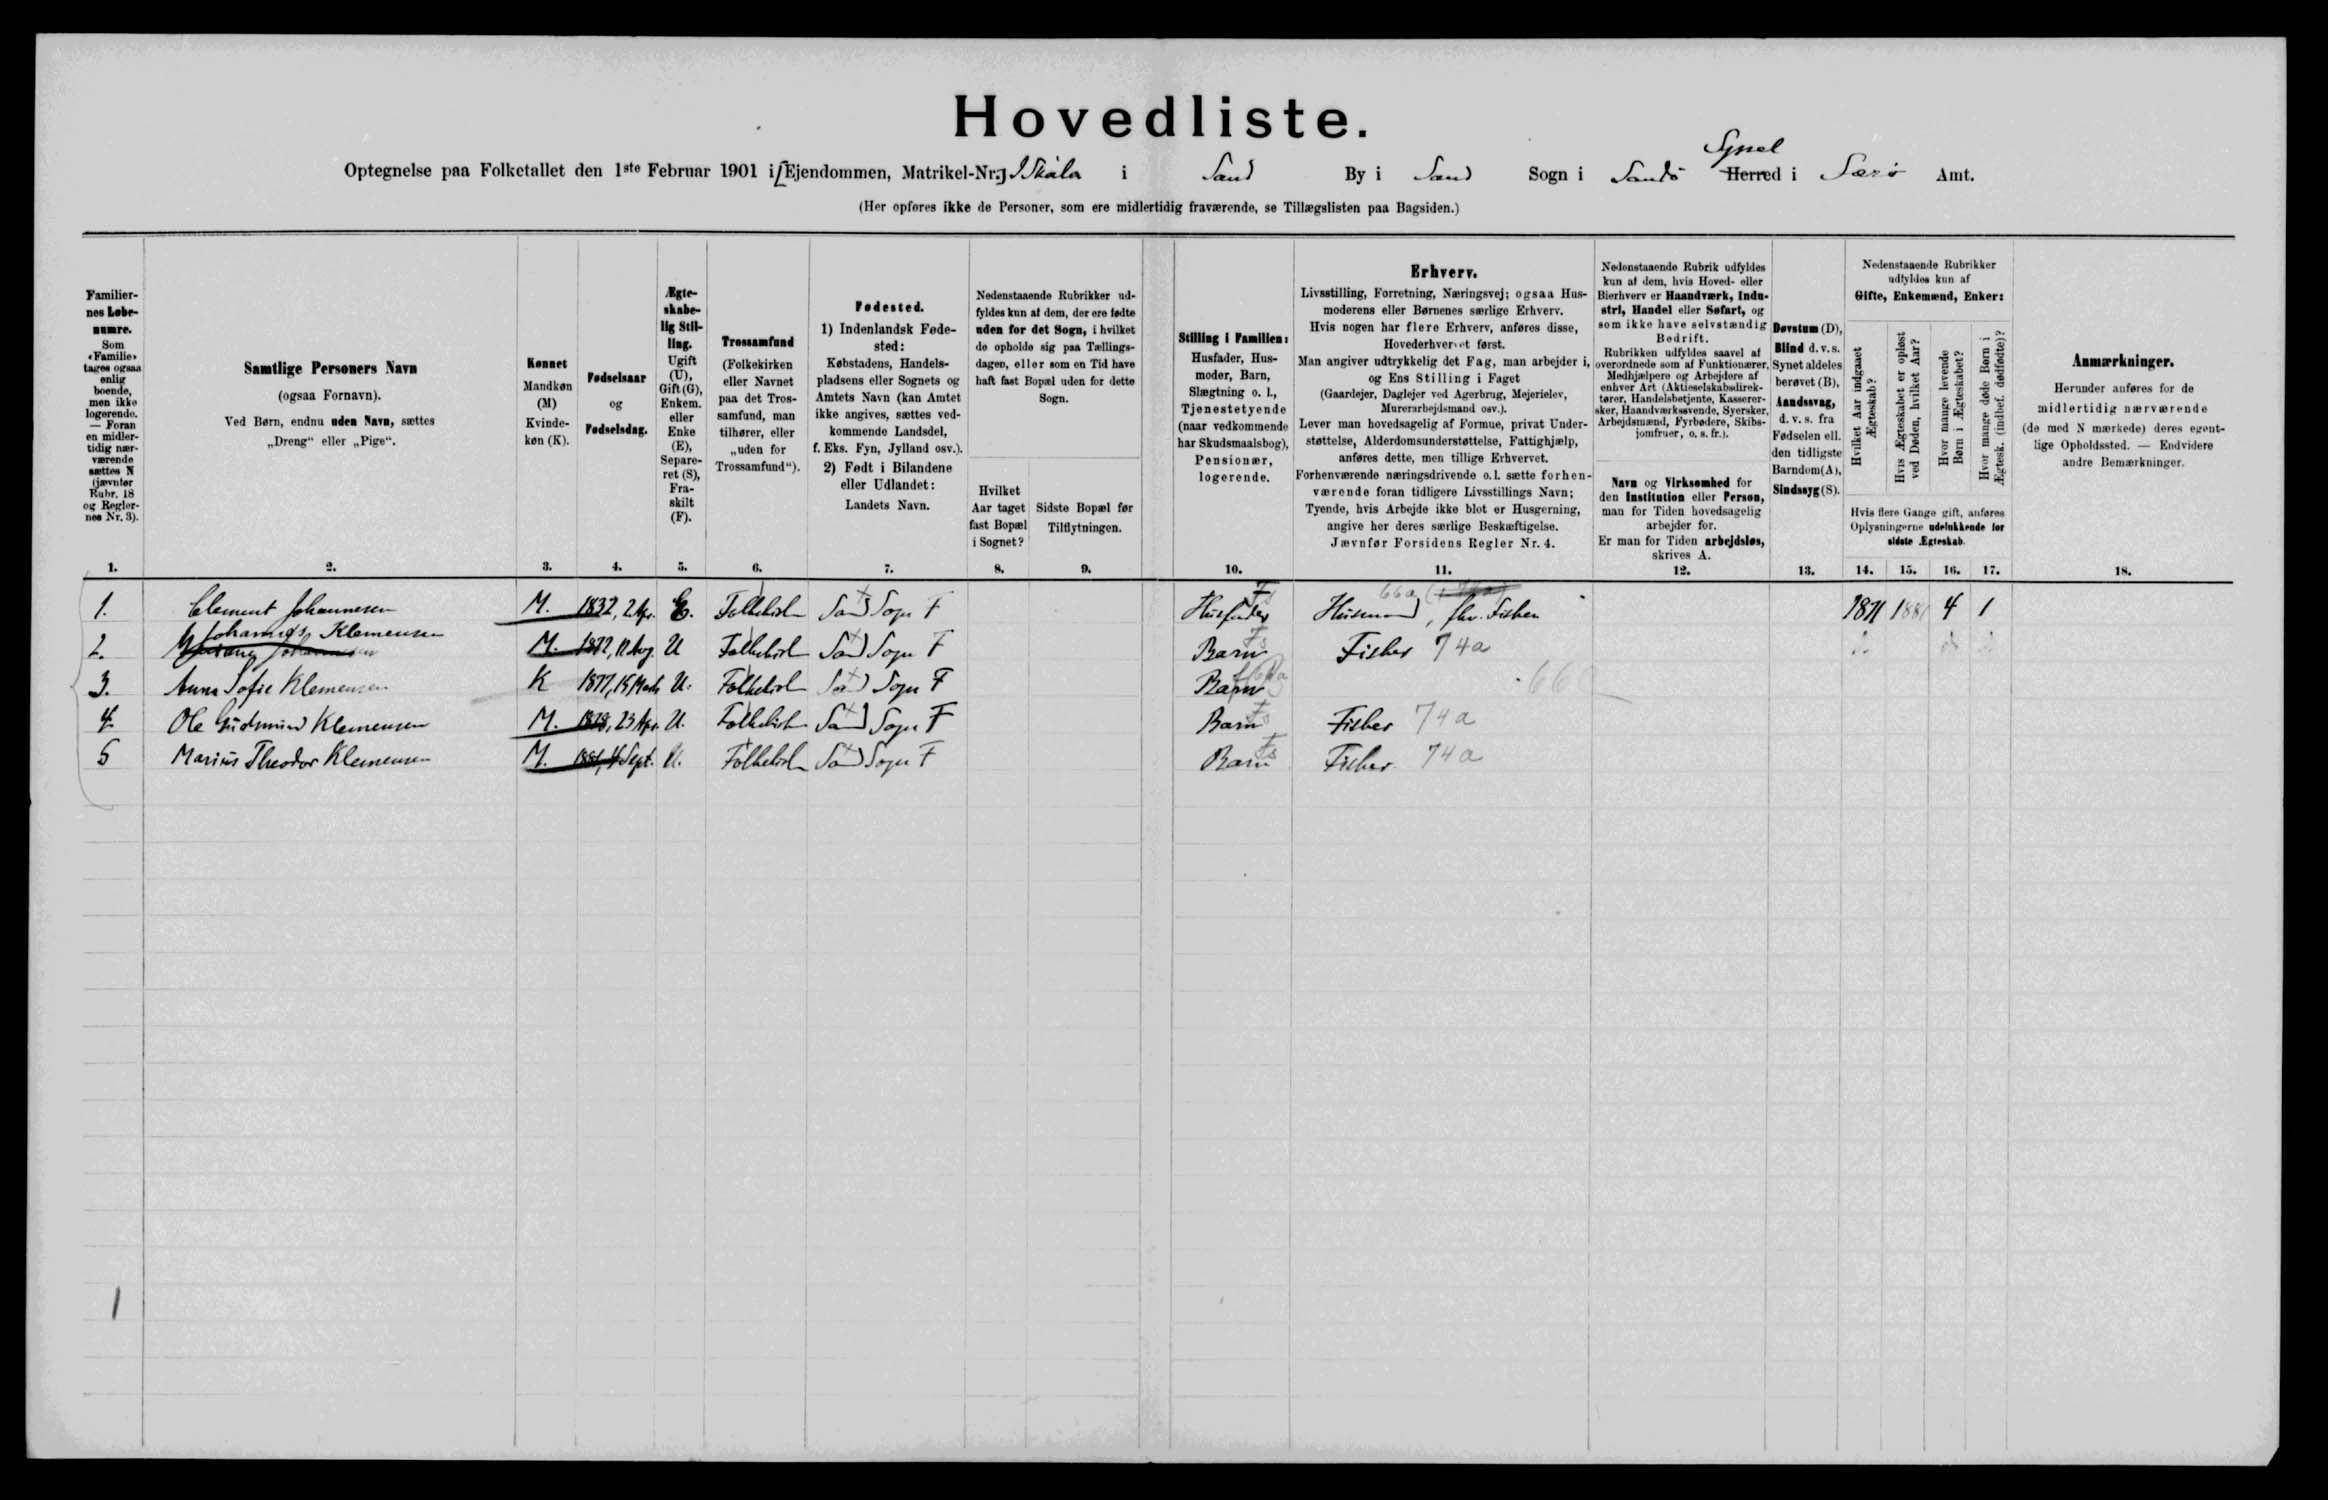 Hovedliste.
Optegnelse paa Folketallet den 1ste Februar 1901 i [Ejendommen, Matrikel-Nr.] I Skála i Sand By i Sand Sogn i Sandö Herred Syssel i Færö Amt.
(Her opføres ikke de Personer, som ere midlertidig fraværende, se Tillægslisten paa Bagsiden.)
Familiernes Løbenumre.
Som «Familie» tages ogsaa enlig boende, men ikke logerende. — Foran en midlertidig nærværende sættes N (jævnfør Rubr. 18 og Reglernes Nr. 3).
Samtlige Personers Navn
(ogsaa Fornavn).
Ved Børn, endnu uden Navn, sættes
„Dreng“ eller „Pige“.
Kønnet
Mandkøn (M)
Kvindekøn (K).
Fødselsaar
og
Fødselsdag.
Ægteskabelig Stilling.
Ugift (U), Gift (G), Enkem. eller Enke (E), Separeret (S), Fraskilt (F).
Trossamfund
(Folkekirken eller Navnet paa det Trossamfund, man tilhører, eller „uden for Trossamfund“).
Fødested.
1) Indenlandsk Fødested:
Købstadens, Handelspladsens eller Sognets og Amtets Navn (kan Amtet ikke angives, sættes vedkommende Landsdel, f. Eks. Fyn, Jylland osv.).
2) Født i Bilandene eller Udlandet:
Landets Navn.
Nedenstaaende Rubrikker udfyldes kun af dem, der ere fødte uden for det Sogn, i hvilket de opholde sig paa Tællingsdagen, eller som en Tid have haft fast Bopæl uden for dette Sogn.
Hvilket Aar taget fast Bopæl i Sognet?
Sidste Bopæl før Tilflytningen.
Stilling i Familien:
Husfader, Husmoder, Barn, Slægtning o. l., Tjenestetyende (naar vedkommende har Skudsmaalsbog), Pensionær, logerende.
Erhverv.
Livsstilling, Forretning, Næringsvej; ogsaa Husmoderens eller Børnenes særlige Erhverv.
Hvis nogen har flere Erhverv, anføres disse, Hovederhvervet først.
Man angiver udtrykkelig det Fag, man arbejder i, og Ens Stilling i Faget
(Gaardejer, Daglejer ved Agerbrug, Mejerielev, Murerarbejdsmand osv.).
Lever man hovedsagelig af Formue, privat Understøttelse, Alderdomsunderstøttelse, Fattighjælp, anføres dette, men tillige Erhvervet.
Forhenværende næringsdrivende o. l. sætte forhenværende foran tidligere Livsstillings Navn;
Tyende, hvis Arbejde ikke blot er Husgerning, angive her deres særlige Beskæftigelse.
Jævnfør Forsidens Regler Nr. 4.
Nedenstaaende Rubrik udfyldes kun af dem, hvis Hoved- eller Bierhverv er Haandværk, Industri, Handel eller Søfart, og som ikke have selvstændig Bedrift.
Rubrikken udfyldes saavel af overordnede som af Funktionærer, Medhjælpere og Arbejdere af enhver Art (Aktieselskabsdirektører, Handelsbetjente, Kasserersker, Haandværkssvende, Syersker, Arbejdsmænd, Fyrbødere, Skibsjomfruer, o. s. fr.).
Navn og Virksomhed for den Institution eller Person, man for Tiden hovedsagelig arbejder for.
Er man for Tiden arbejdsløs, skrives A.
Døvstum (D), Blind d. v. s. Synet aldeles berøvet (B), Aandssvag, d. v. s. fra Fødselen ell. den tidligste Barndom (A), Sindssyg (S).
Nedenstaaende Rubrikker udfyldes kun af
Gifte, Enkemænd, Enker:
Hvilket Aar indgaaet Ægteskab?
Hvis Ægteskabet er opløst ved Døden, hvilket Aar?
Hvor mange levende Børn i Ægteskabet?
Hvor mange døde Børn i Ægtesk. (indbef. dødfødte)?
Hvis flere Gange gift, anføres Oplysningerne udelukkende for sidste Ægteskab.
Anmærkninger.
Herunder anføres for de midlertidig nærværende (de med N mærkede) deres egentlige Opholdssted. — Endvidere andre Bemærkninger.
1. 2. 3. 4. 5. 6. 7. 8. 9. 10. 11. 12. 13. 14. 15. 16. 17. 18.
1. Clement Johannesen M. 1832, 2 Apr. E. Folkekirk Sand Sogn F Husfader Fs Husmand, fhv. Fisker 66a 1871 188 4 1
2. Johannes Klemensen M. 1872, 12 Aug. U Folkekirk Sand Sogn F Barn Fs Fisker 74a
3. Anna Sofie Klemensen K 1877, 15 Marts U. Folkekirk Sand Sogn F Barn 66
4. Ole Gudmund Klemensen M. 1878, 23 Apr. U. Folkekirk Sand Sogn F Barn Fs Fisker 74a
5 Marius Theodor Klemensen M. 1881, 4 Sept. U. Folkekirk Sand Sogn F Barn Fs Fisker 74a
1